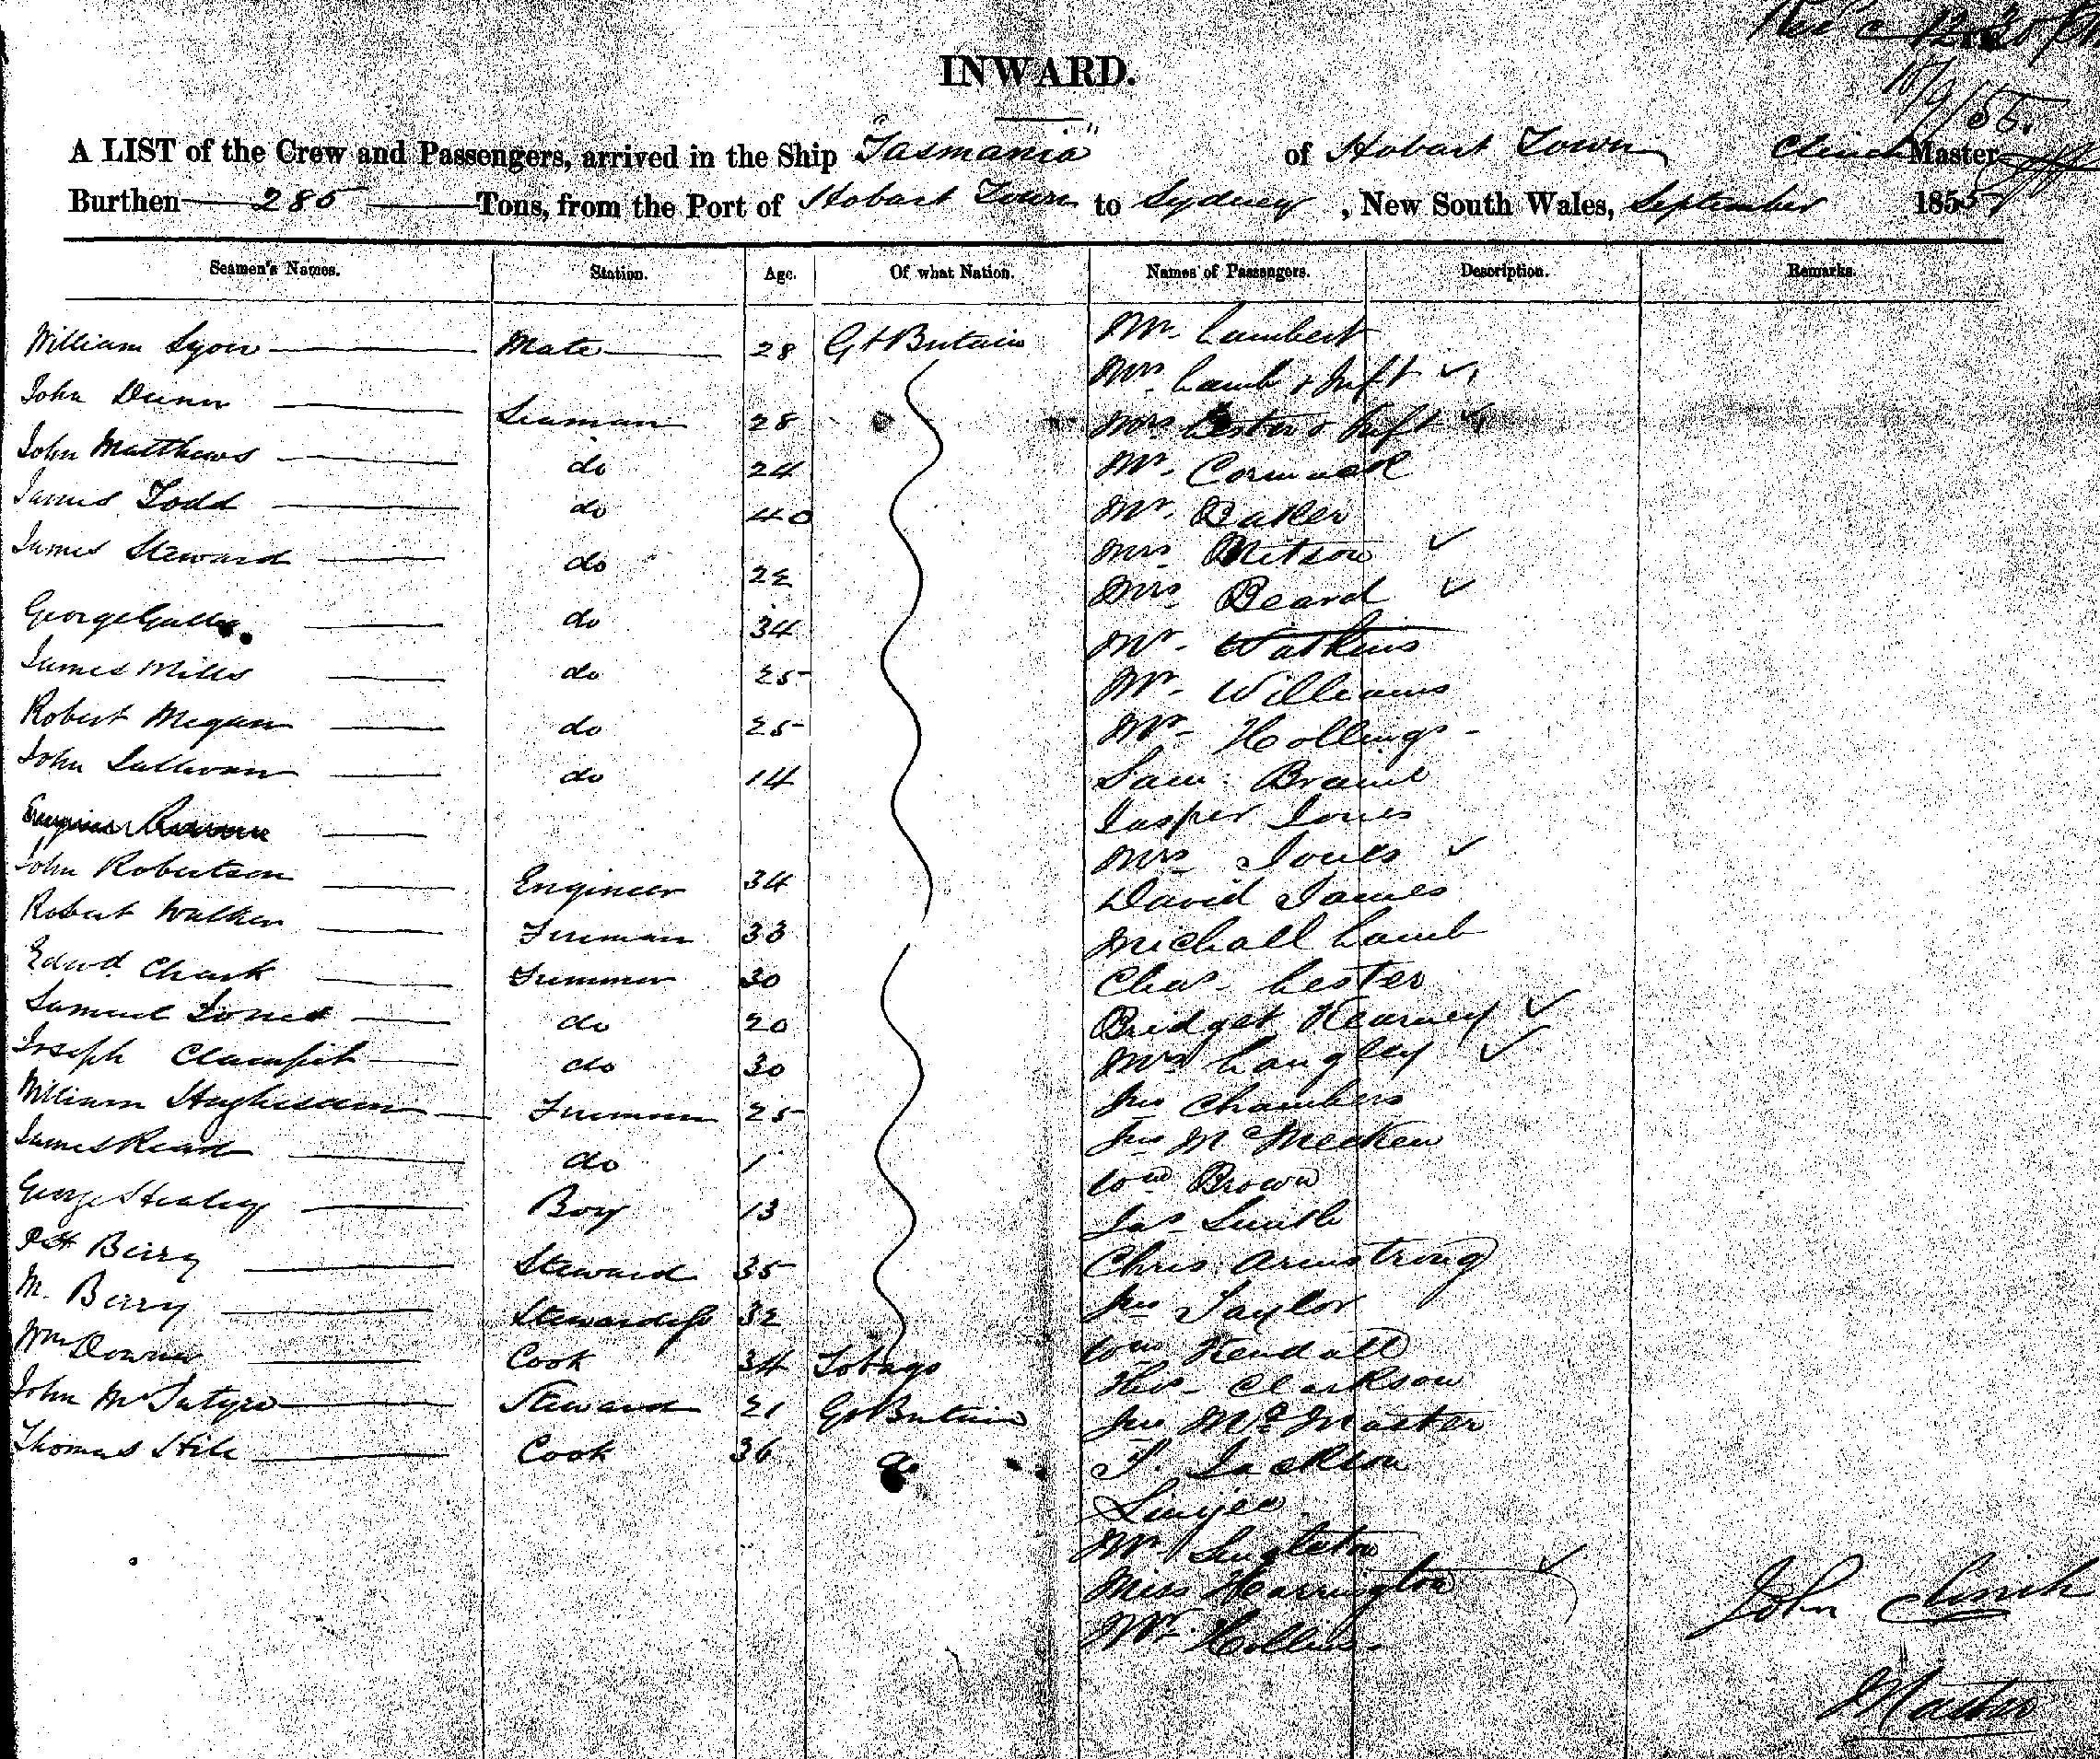 12.30 PM
18/9/55.
INWARD.
A LIST of the Crew and Passengers, arrived in the Ship "Tasmania" of Hobart Town Clinch Master
Burthen 285 Tons, from the Port of Hobart Town to Sydney, New South Wales, September 1855
Seamen's Names. Station. Age. Of what Nation. Names of Passengers. Description. Remarks.
William Lyon Mate 28 Gt Britain Mr. Lambert
Mrs. Lamb & Inft
John Dunn Seaman 28 Mrs Lester & Inft
John Matthews do 24 Mr. Cormack
James Todd do 40 Mr. Baker
James Steward do 22 Mrs Mitson
Mrs. Beard
George do 34 Mr. Watkins
James Mills do 25 Mr. Williams
Robert Megan do 25 Mr. Hollings
John Sullivan do 14 Sam.
Jasper Jones
Mrs Jones
John Robertson Engineer 34 David James
Robert Walker Fireman 33 Michall Lamb
Edwd. Chark Trimmer 30 Chas. Lester
Samuel Jones do 20 Bridget Kearney
Joseph Clampit do 30 Mrs Langley
William Fireman 25 Jno Chambers
James Read do 1 Jno McMecken
Wm Brown
George Healey Boy 13 Jas Smith
Berry Steward 35 Chris Armstrong
M. Berry Stewardess 32 Jno Taylor
Wm Downer Cook 34 Tobago Wm Kendall
Thos. Clarkson
John McIntyre Steward 21 Gt Britain Jno McMaster
Thomas Cook 36 do T. Jackson
Mr Singleton
Miss Harrington
Mr. Hollins
John Clinch
Master